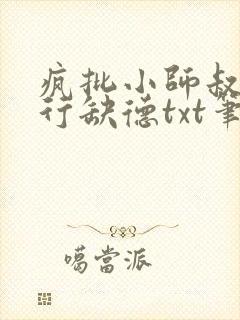 疯批小師叔
行缺德txt筆
噶當派